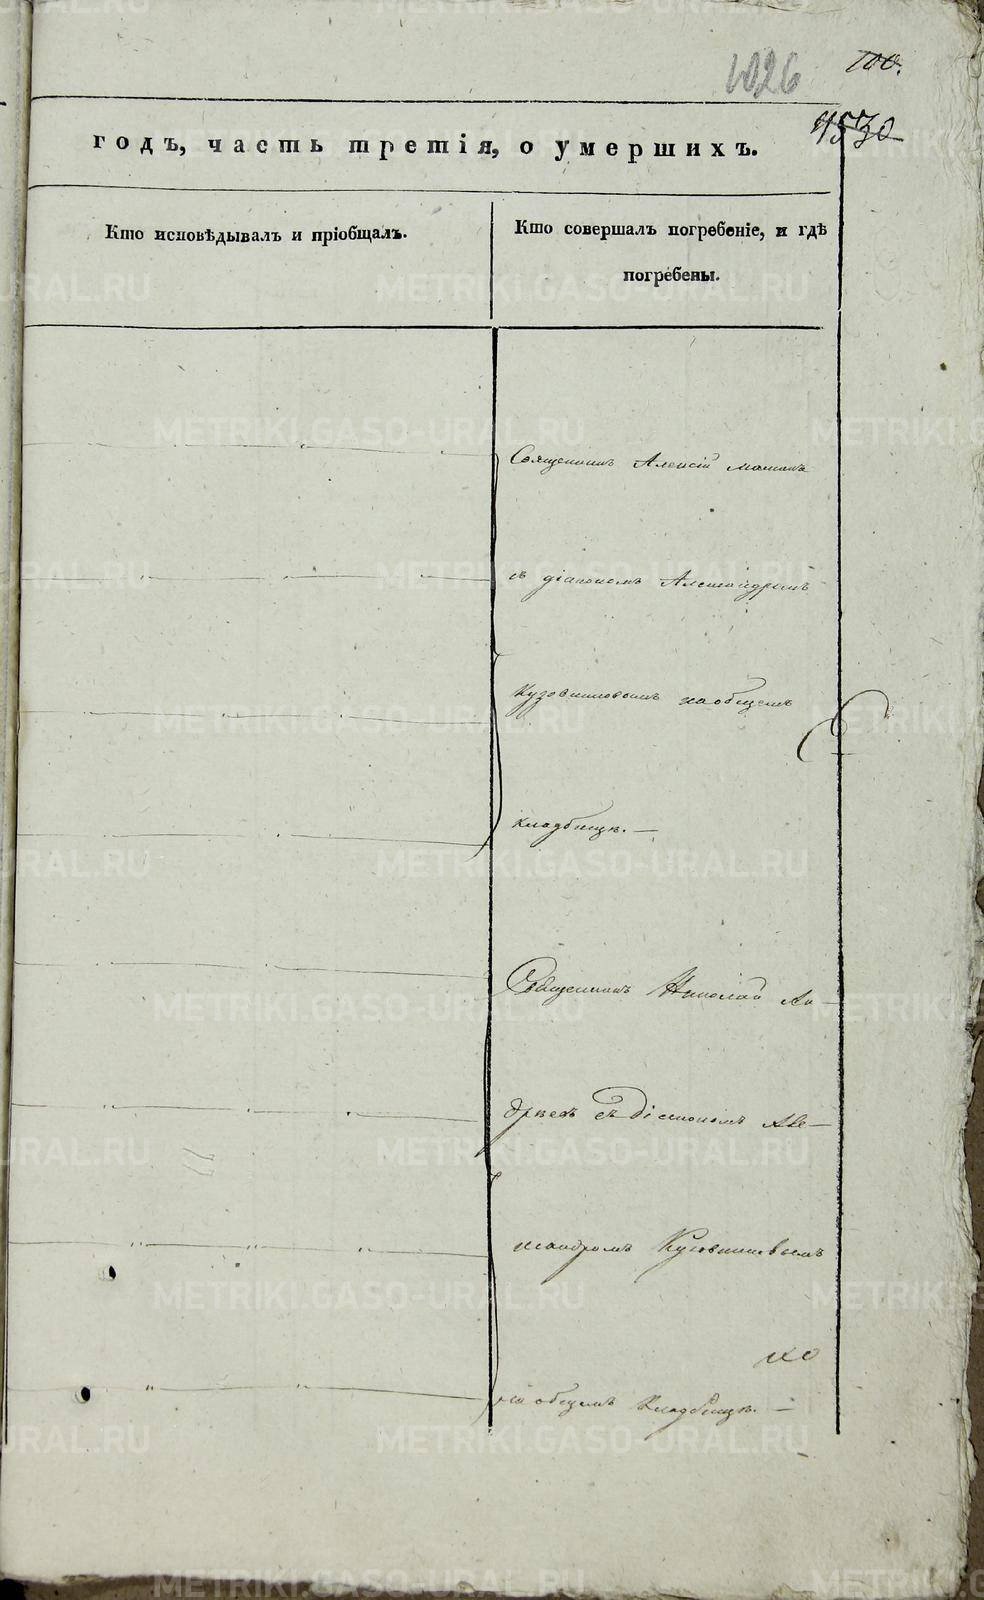 1026
100.
4530
годъ, часть третія, о умершихъ.
Кто исповѣдывалъ и пріобщалъ.
Кто совершалъ погребеніе, и гдѣ
погребены.
Священникъ Алексій
съ діакономъ Александромъ
на общемъ
кладбищѣ. —
Священникъ Николай Ан-
съ Діакономъ Але-
ксандромъ
на общемъ кладбищѣ. —
METRIKI.GASO-URAL.RU